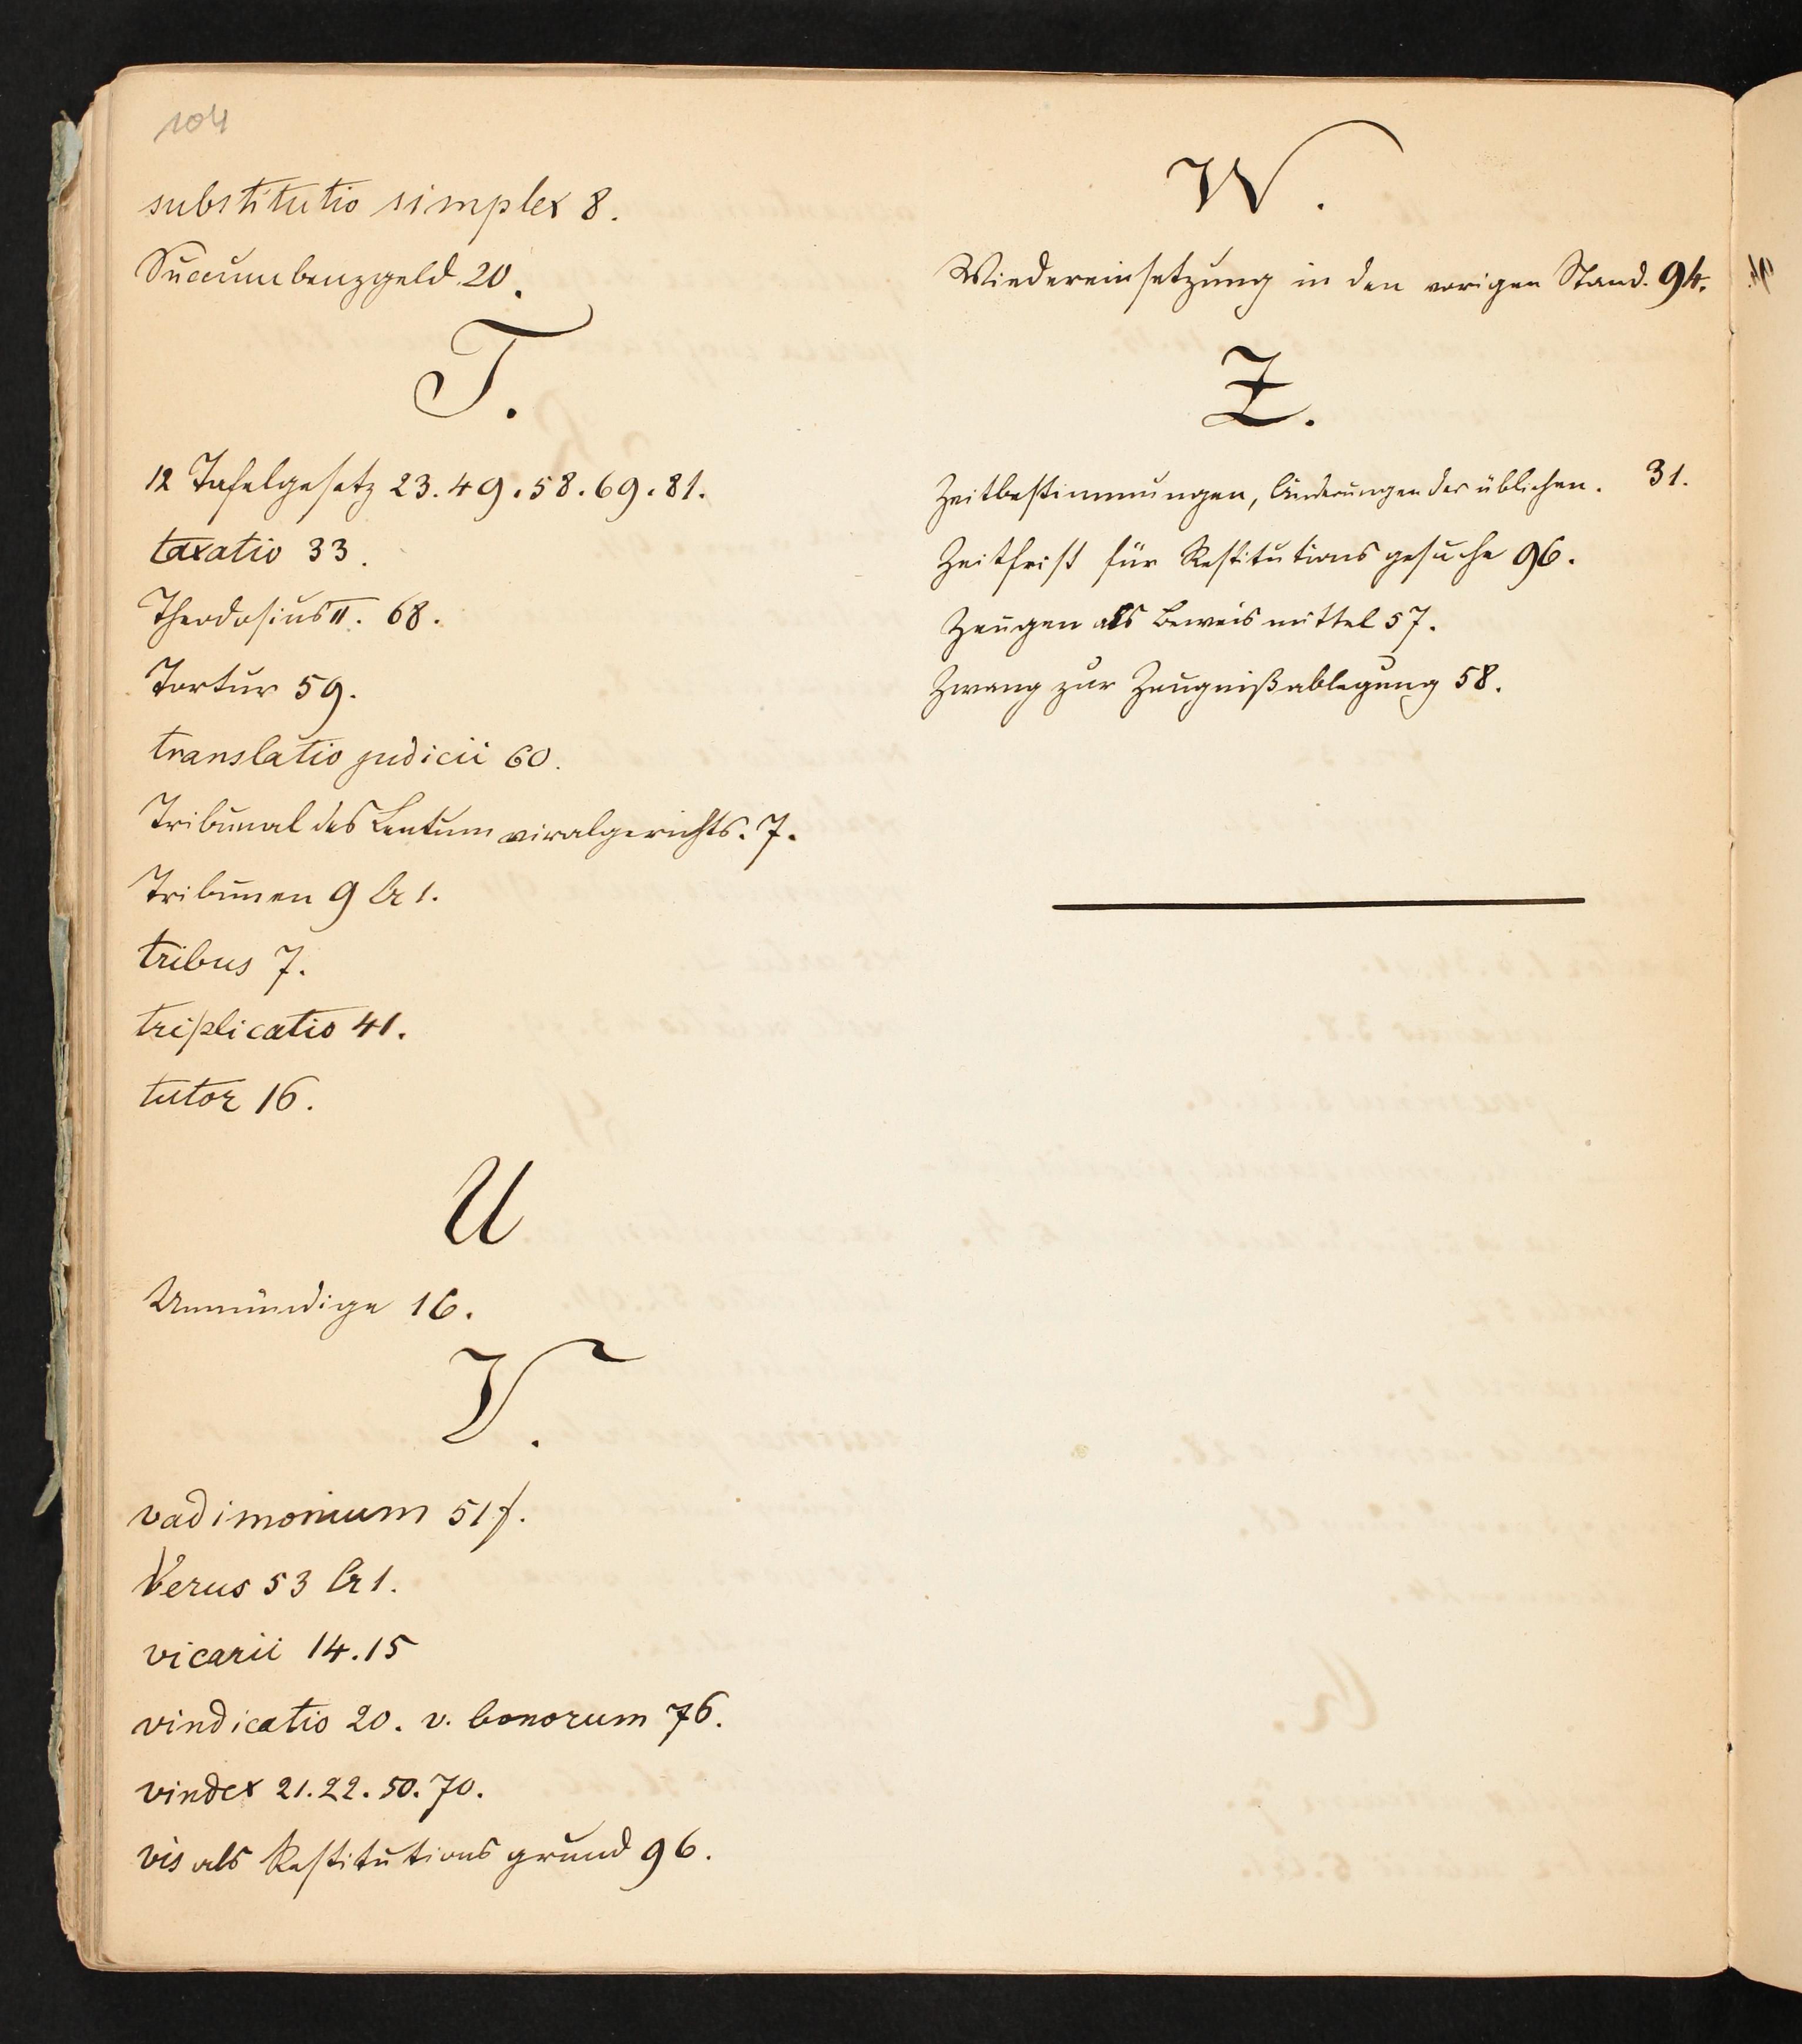 104
substitutio simplex 8.
Succumbenzgeld 20.
T.
12 Tafelgesetz 23. 49. 58. 69. 81.
taxatio 33.
Theodosius II. 68.
Tortur 59.
translatio judicii 60.
Tribunal des Centumviralgerichts. 7.
Tribunen 9 A 1.
tribus 7.
triplicatio 41.
tutor 16.
U
Unmündige 16.
V.
vadimonium 51 f.
Verus 53 A 1.
vicarii 14. 15
vindicatio 20. v. bonorum 76.
vindex 21. 22. 50. 70.
vis als Restitutionsgrund 96.
W.
Wiedereinsetzung in den vorigen Stand. 94.
Z.
Zeitbestimmungen, Änderungen der üblichen. 31.
Zeitfrist für Restitutionsgesuche 96.
Zeugen als Beweismittel 57.
Zwang zur Zeugnißablegung 58.